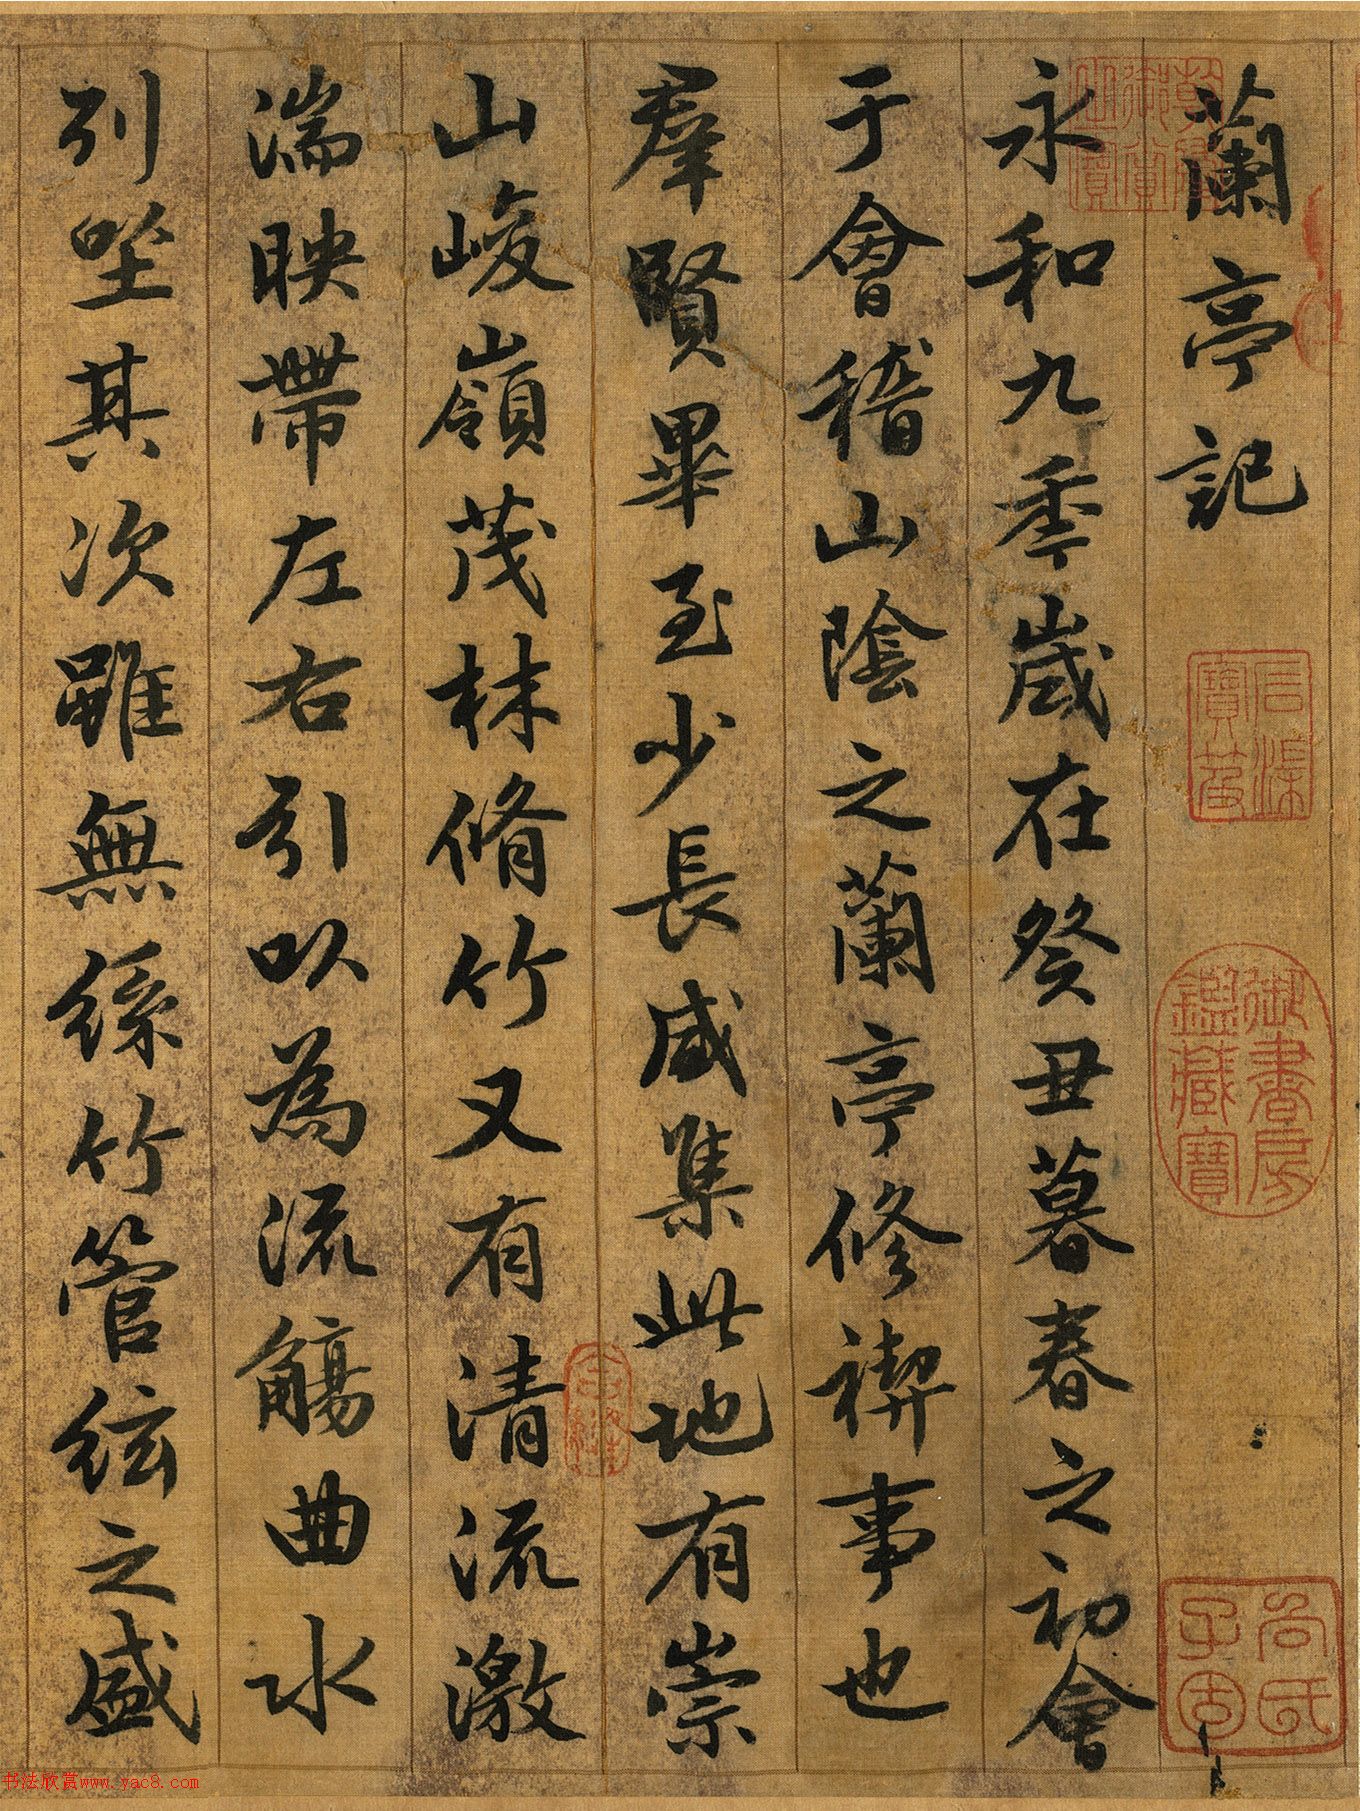 蘭亭記
永和九年歲在癸丑暮春之初會
于會稽山陰之蘭亭修禊事也
羣賢畢至少長咸集此地有崇
山峻嶺茂林脩竹又有清流激
湍映帶左右引以為流觴曲水
列坐其次雖無絲竹管弦之盛
御書房鑑藏寶
尚氏子固
书法欣赏www.yac8.com